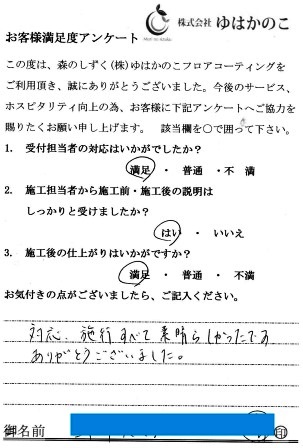 株式会社 ゆはかのこ
お客様満足度アンケート
この度は、森のしずく(株)ゆはかのこフロアコーティングを
ご利用頂き、誠にありがとうございました。今後のサービス、
ホスピタリティ向上の為、お客様に下記アンケートへご協力を
賜りたくお願い申し上げます。 該当欄を〇で囲って下さい。
1. 受付担当者の対応はいかがでしたか？
満足 ・ 普通 ・ 不 満
2. 施工担当者から施工前・施工後の説明は
しっかりと受けましたか？
はい ・ いいえ
3. 施工後の仕上がりはいかがですか？
満足 ・ 普通 ・ 不満
お気付きの点がございましたら、ご記入ください。
対応、施行すべて素晴らしかったです
ありがとうございました。
御名前
印